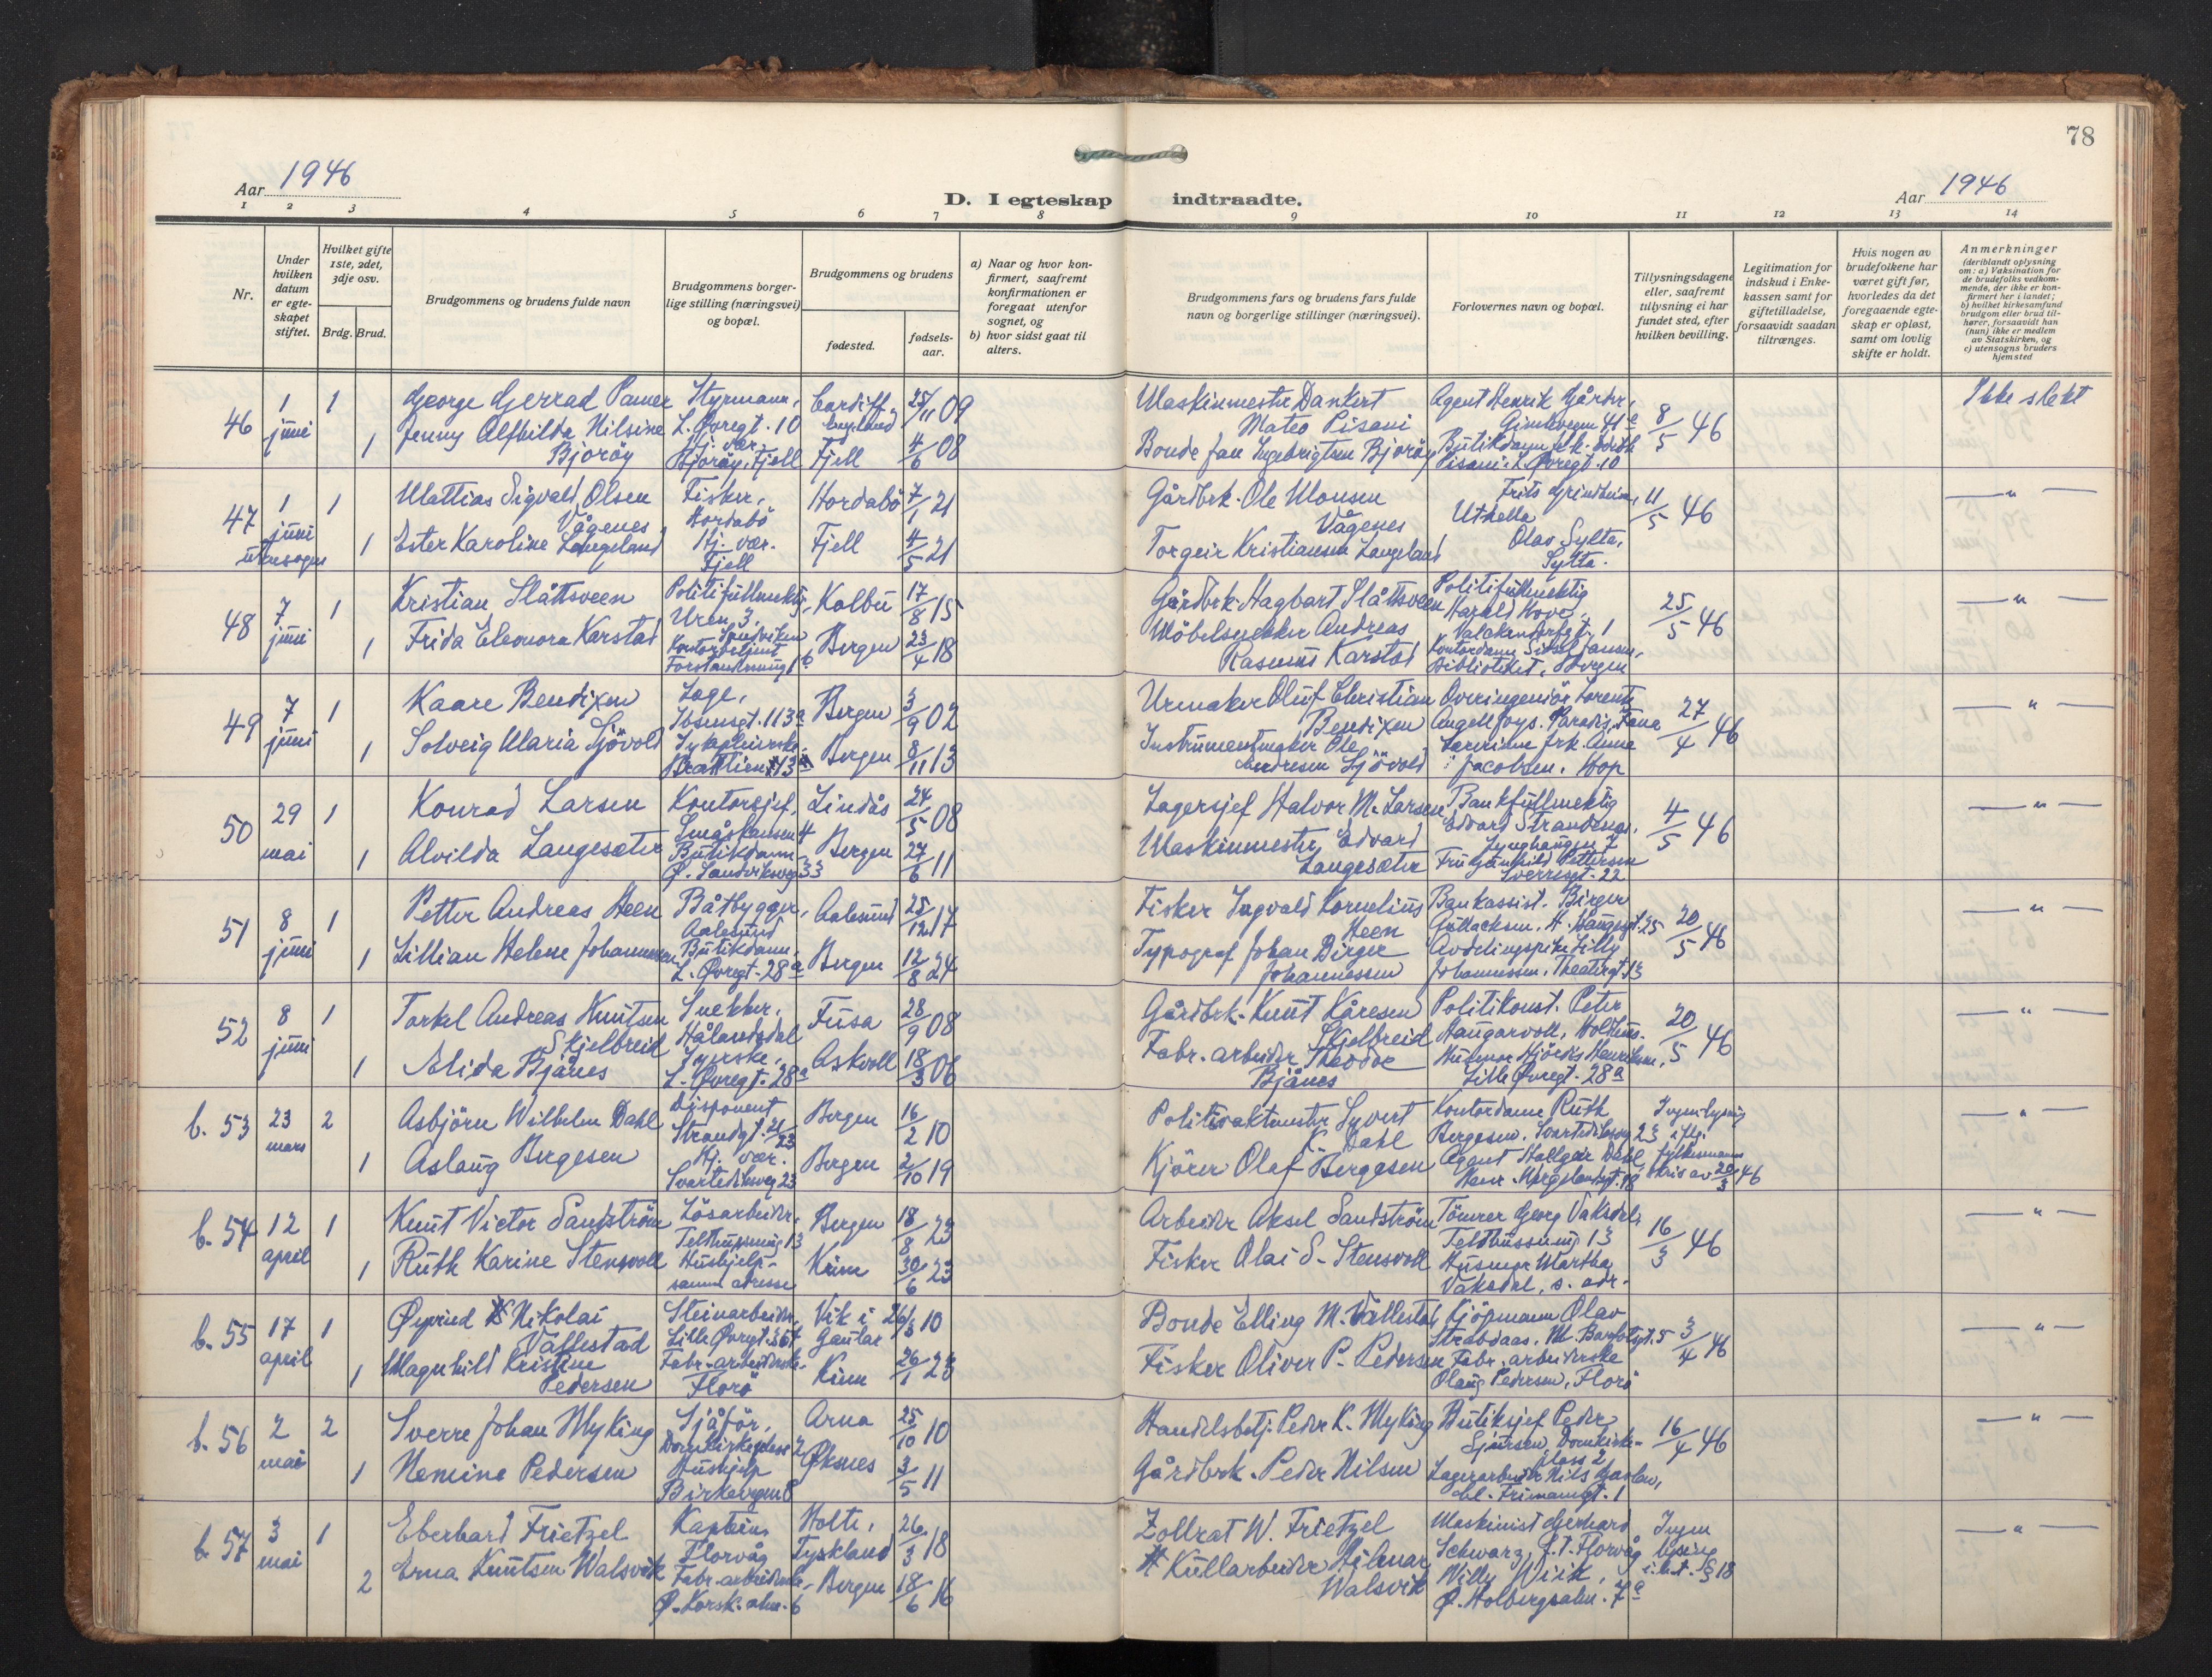 78
Aar 1946
D. I egteskap indtraadte.
Aar 1946
1 2 3 4 5 6 7 8 9 10 11 12 13 14
Nr.
Under hvilken datum er egteskapet stiftet.
Hvilket gifte 1ste, 2det, 3dje osv.
Brdg. Brud.
Brudgommens og brudens fulde navn
Brudgommens borgerlige stilling (næringsvei) og bopæl.
Brudgommens og brudens
fødested.
fødselsaar.
a) Naar og hvor konfirmert, saafremt konfirmationen er foregaat utenfor sognet, og
b) hvor sidst gaat til alters.
Brudgommens fars og brudens fars fulde navn og borgerlige stillinger (næringsvei).
Forlovernes navn og bopæl.
Tillysningsdagene eller, saafremt tillysning ei har fundet sted, efter hvilken bevilling.
Legitimation for indskud i Enkekassen samt for giftetilladelse, forsaavidt saadan tiltrænges.
Hvis nogen av brudefolkene har været gift før, hvorledes da det foregaaende egteskap er opløst, samt om lovlig skifte er holdt.
Anmerkninger (deriblandt oplysning om: a) Vaksination for de brudefolks vedkommende, der ikke er konfirmert her i landet; b) hvilket kirkesamfund brudgom eller brud tilhører, forsaavidt han (hun) ikke er medlem av Statskirken, og c) utensogns bruders hjemsted
46 1 juni 1 George Gerrad Pamer Styrmann, L. Øvregt. 10 Cardiff England 25/11 09 Maskinmester Dankert Mateo Pisani Agent Henrik Gårder, 8/5 46 Ikke slekt
1 Jenny Alfhilda Nilsine Bjorøy Hj. vær. Bjorøy, Fjell Fjell 4/6 08 Bonde Jan Ingebrigtsen Bjorøy Butikdame frk. Edith Pisani L. Øvregt. 10
47 1 juni utensogns 1 Mattias Sigvald Olsen Vågenes Fisker, Hordabö Hordabö 7/1 21 Gårdbrk. Ole Monsen Vågenes Frits Grindheim, Uthella 11/5 46 — " —
1 Ester Karoline Langeland Hj. vær. Fjell Fjell 4/5 21 Torgeir Kristiansen Langeland Olav Sylta, Sylta.
48 7 juni 1 Kristian Slåttsveen Politifullmektig, Uren 3, Sandviken Kolbu 17/8 15 Gårdbrk. Hagbart Slåttsveen Politifullmektig Harald Hove, Valckendorfsgt. 1 25/5 46 — " —
1 Frida Eleonora Karstad Kontorbetjent Bergen 23/4 18 Möbelsnekker Andreas Rasmus Karstad Kontordame Sidsel Jansen, Biblioteket, Bergen
49 7 juni 1 Kaare Bendixen Lege, Ibsensgt. 113a Bergen 3/9 02 Urmaker Oluf Christian Bendixen Overingeniör Lorentz Angell Joys. Paradis, Fana 27/4 46 — " —
1 Solveig Maria Sjövold Sykepleierske Brattlien 13 Bergen 8/11 13 Instrumentmaker Ole Andresen Sjövold Lærerinne frk. Anna Jacobsen. Hop
50 29 mai 1 Konrad Larsen Kontorsjef, Småskansen 4 Lindås 24/5 08 Lagersjef Halvor M. Larsen Bankfullmektig Edvard Strandenes, Lynghaugen 7 4/5 46 — " —
1 Alvilda Langesæter Butikdame Ø. Sandviksveg 33 Bergen 27/6 11 Maskinmester Edvard Langesæter Fru Gunhild Pettersen Sverresgt. 22
51 8 juni 1 Petter Andreas Heen Båtbygger, Aalesund Aalesund 25/12 17 Fisker Ingvald Kornelius Heen Bankassist. Birger Gullacksen. H. Haugesgt. 25 20/5 46 — " —
1 Lillian Helene Johannessen Butikdame, L. Øvregt. 28a Bergen 12/8 24 Typograf Johan Birger Johannessen Avdelingspike Lilly Johannessen, Theatergt. 13
52 8 juni 1 Torkel Andreas Knutsen Skjelbreid Snekker, Hålandsdal Fusa 28/9 08 Gårdbrk. Knut Kåresen Skjelbreid Politikonst. Peter Haugarvoll, Holthus. 20/5 46 — " —
1 Alida Bjånes Syerske, L. Øvregt. 28a Askvoll 18/3 06 Fabr. arbeider Theodor Bjånes Husmor Hjördis Henriksen, Lille Øvregt. 28a
b. 53 23 mars 2 Asbjörn Wilhelm Dahl Disponent Strandgt. 21/23 Bergen 16/2 10 Politivaktmester Syvert K. Dahl Kontordame Ruth Bergesen. Svartediksveg 23 Ingen lysing iflg. fylkesmanns skriv av 20/3 46 — " —
1 Aslaug Bergesen Hj. vær. Svartediksveg 23 Bergen 2/10 19 Kjörer Olaf Bergesen Agent Hallgeir Dahl, Henr. Wergelandsgt. 18
b. 54 12 april 1 Knut Victor Sandström Lösarbeider, Telthussmug 13 Bergen 18/8 23 Arbeider Aksel Sandström Tömrer Georg Vaksdal, Telthussmug 13 16/3 46 — " —
1 Ruth Karine Stensvoll Hushjelp- samme adresse Kinn 30/6 23 Fisker Olai S. Stensvoll Husmor Martha Vaksdal, s. adr.
b. 55 17 april 1 Øyvind Nikolai Vallestad Steinarbeider, Lille Øvregt. 36 Vik i Gaular 26/3 10 Bonde Elling M. Vallestad Kjöpmann Olav Strabdaas. 3/4 46 — " —
1 Magnhild Kristine Pedersen Fabr-arbeiderske. Florö Kinn 26/1 23 Fisker Oliver P. Pedersen Fabr. arbeiderske Olaug Pedersen, Florö
b. 56 2 mai 2 Sverre Johan Myking Sjåför, Domkirkeplass 2 Arna 25/10 10 Handelsbetj. Peder K. Myking Butiksjef Peder Sjursen, Domkirkeplass 2 16/4 46 — " —
1 Nemine Pedersen Hushjelp Birkevegen 8 Øksnes 3/5 11 Gårdbrk. Peder Nilsen Lagerarbeider Nils
b. 57 3 mai 1 Eberhard Frietzel Kaptein, Florvåg Holte, Tyskland 26/3 18 Zollrat W. Frietzel Maskinist Gerhard Schwarz, Florvåg Ingen lysing — " —
2 Erna Knutsen Walsvik Fabr-arbeiderske, Ø. Korsk. alm. 6 Bergen 18/6 16 Kullarbeider Hilmar Walsvik Willy Wiik, Ø. Holbergsalm. 7a